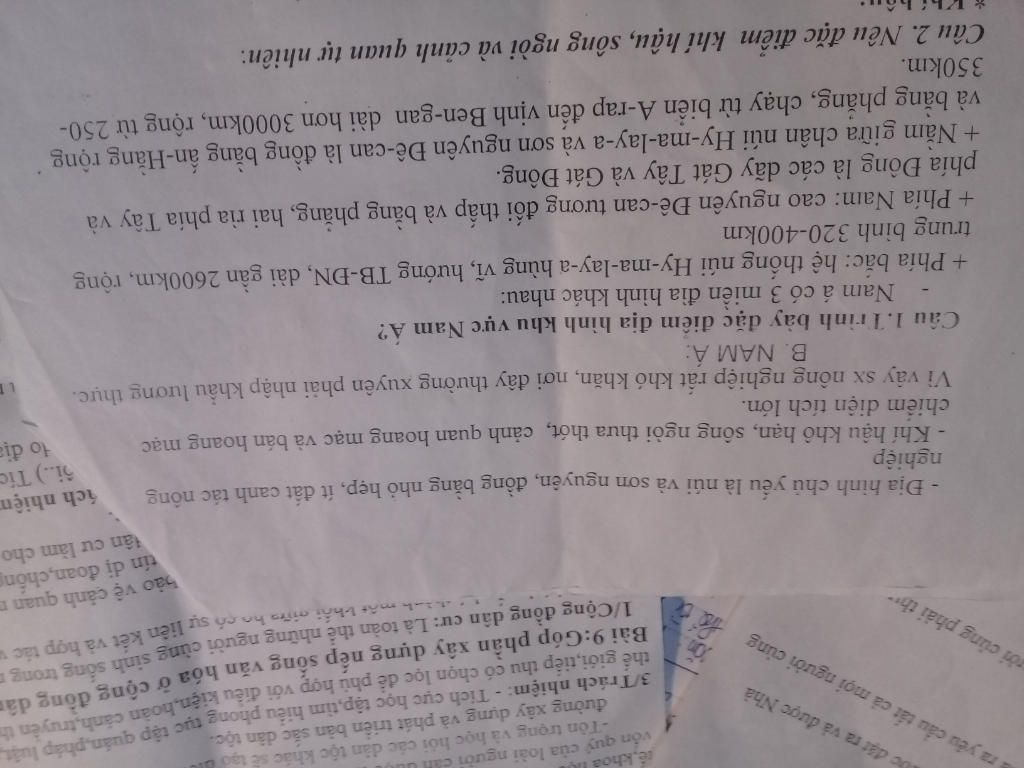 - Địa hình chủ yếu là núi và sơn nguyên, đồng bằng nhỏ hẹp, ít đất canh tác nông
nghiệp
- Khí hậu khô hạn, sông ngòi thưa thớt, cảnh quan hoang mạc và bán hoang mạc
chiếm diện tích lớn.
Vì vậy sx nông nghiệp rất khó khăn, nơi đây thường xuyên phải nhập khẩu lương thực.
B. NAM Á:
Câu 1.Trình bày đặc điểm địa hình khu vực Nam Á?
- Nam á có 3 miền địa hình khác nhau:
+ Phía bắc: hệ thống núi Hy-ma-lay-a hùng vĩ, hướng TB-ĐN, dài gần 2600km, rộng
trung bình 320-400km
+ Phía Nam: cao nguyên Đê-can tương đối thấp và bằng phẳng, hai rìa phía Tây và
phía Đông là các dãy Gát Tây và Gát Đông.
+ Nằm giữa chân núi Hy-ma-lay-a và sơn nguyên Đê-can là đồng bằng ấn-Hằng rộng
và bằng phẳng, chạy từ biển A-rap đến vịnh Ben-gan dài hơn 3000km, rộng từ 250-
350km.
Câu 2. Nêu đặc điểm khí hậu, sông ngòi và cảnh quan tự nhiên:
vốn quý của loài người cần được
-Tôn trọng và học hỏi các dân tộc khác sẽ tạo
đường xây dựng và phát triển bản sắc dân tộc.
3/Trách nhiệm: - Tích cực học tập,tìm hiểu phong tục tập quán,pháp luật,
thế giới,tiếp thu có chọn lọc để phù hợp với điều kiện,hoàn cảnh,truyền th
Bài 9:Góp phần xây dựng nếp sống văn hóa ở cộng đồng dân
1/Cộng đồng dân cư: Là toàn thể những người cùng sinh sống trong
có sự liên kết và hợp tác
bảo vệ cảnh quan
tín dị đoan,chống
dân cư làm cho
ách nhiệm
Tíc
ho địa
đặt ra và được Nhà
ra yêu cầu tất cả mọi người cùng
cùng phải thự